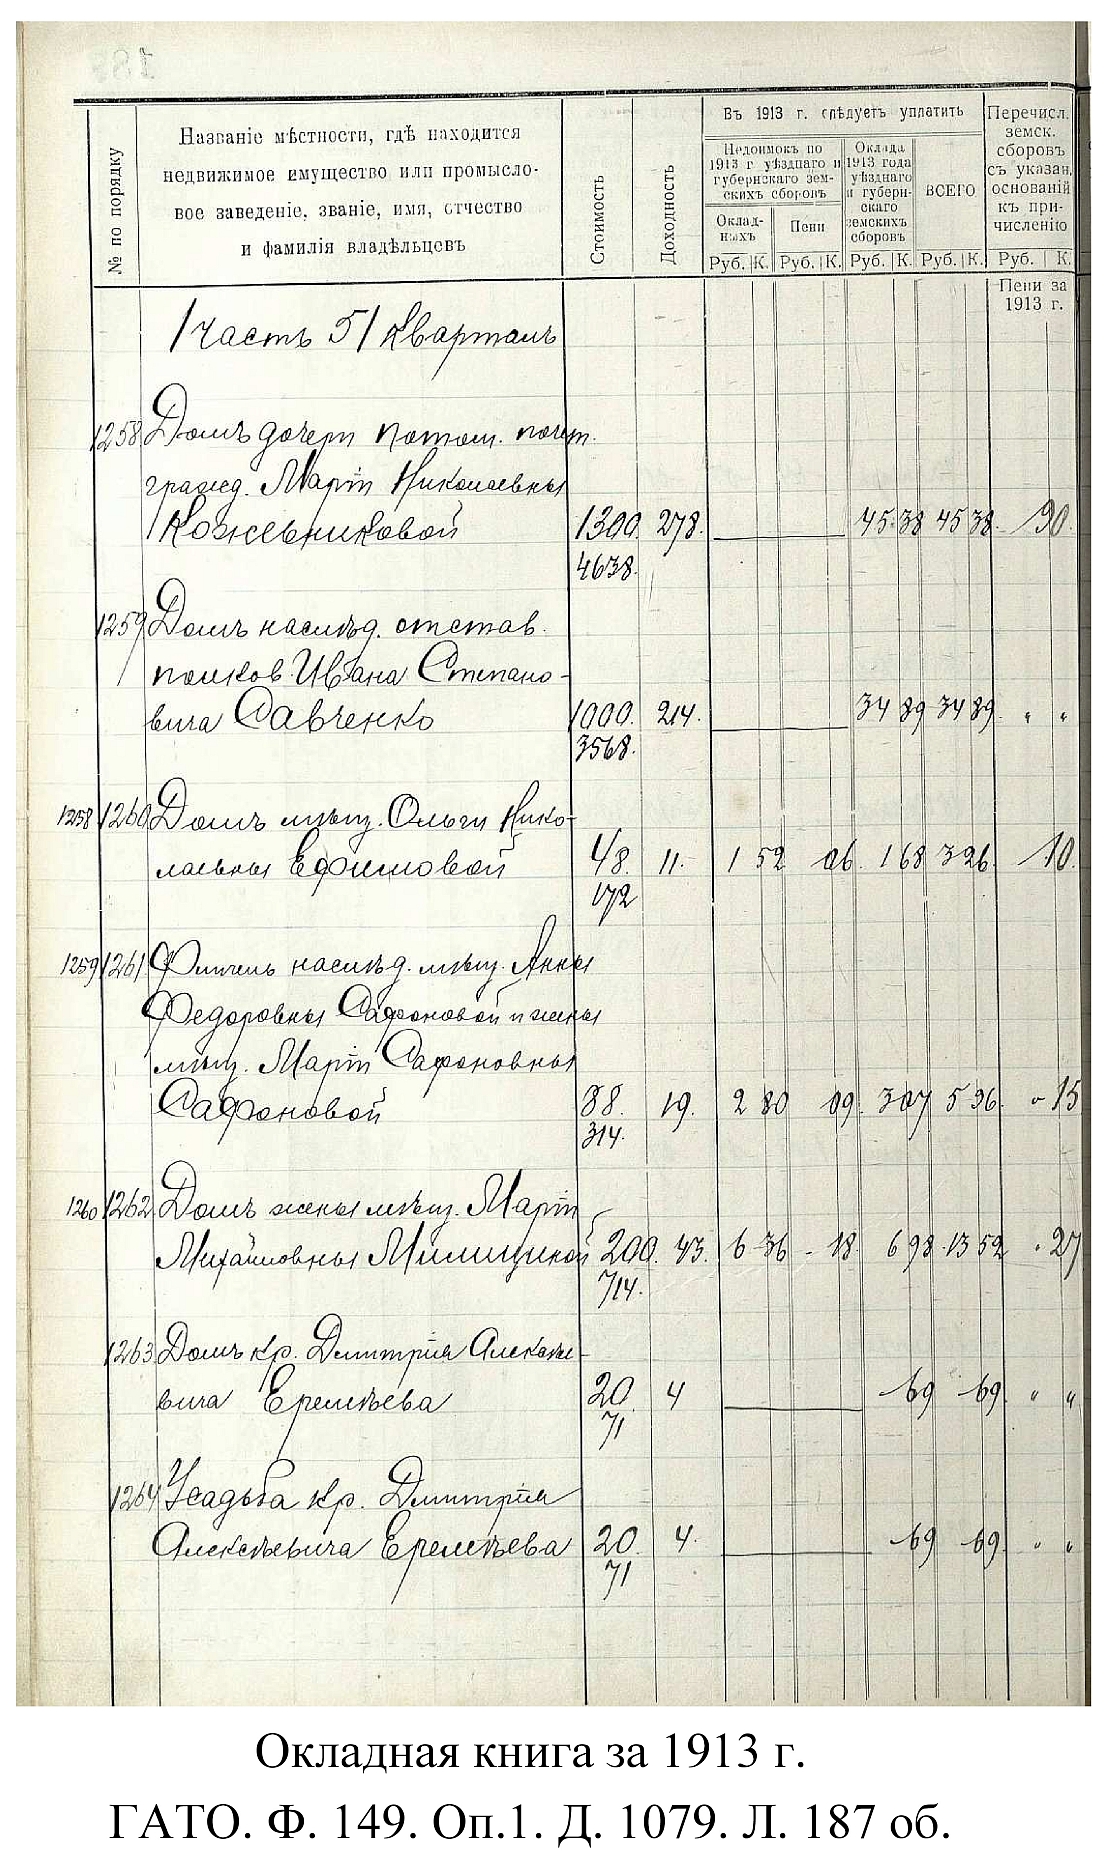 № по порядку
Названіе мѣстности, гдѣ находится
недвижимое имущество или промысло-
вое заведеніе, званіе, имя, отчество
и фамилія владѣльцевъ
Стоимость
Доходность
Въ 1913 г. слѣдуетъ уплатить
Недоимокъ по
1913 г уѣзднаго и
губернскаго зем-
скихъ сборовъ
Оклад-
ныхъ
Пени
Оклада
1913 года
уѣзднаго
и губерн-
скаго
земскихъ
сборовъ
ВСЕГО
Перечисл.
земск.
сборовъ
съ указан.
основаній
къ при-
численію
Руб. К. Руб. К. Руб. К. Руб. К. Руб. К.
Пени за
1913 г.
1 часть 51 кварталъ
1258 Домъ дочери потом. почет.
гражд. Маріи Николаевны
Кожевниковой 1300. 278. 45 38 45 38 90.
4638.
1259 Домъ наслѣд. отстав.
полков. Ивана Степано-
вича Савченко 1000. 214. 34 89 34 89 " "
3568.
1258 1260 Домъ мѣщ. Ольги Нико-
лаевны Ефимовой 48. 11. 1 52 06. 1 68 3 26 10.
172
1259 1261 Флигель наслѣд. мѣщ. Анны
Федоровны Сафоновой и жены
мѣщ. Маріи Сафоновны
Сафоновой 88. 19. 2 80 09. 3 07 5 96 " 15
314.
1260 1262 Домъ жены мѣщ. Маріи
Михайловны 200. 43. 6 36 - 18. 6 98 13 52 " 27
714.
1263 Домъ кр. Дмитрія Алексѣе-
вича Еремѣева 20. 4 69 69 " "
71
1264 Усадьба кр. Дмитрія
Алексѣевича Еремѣева 20. 4. 69 69. " "
71
Окладная книга за 1913 г.
ГАТО. Ф. 149. Оп.1. Д. 1079. Л. 187 об.